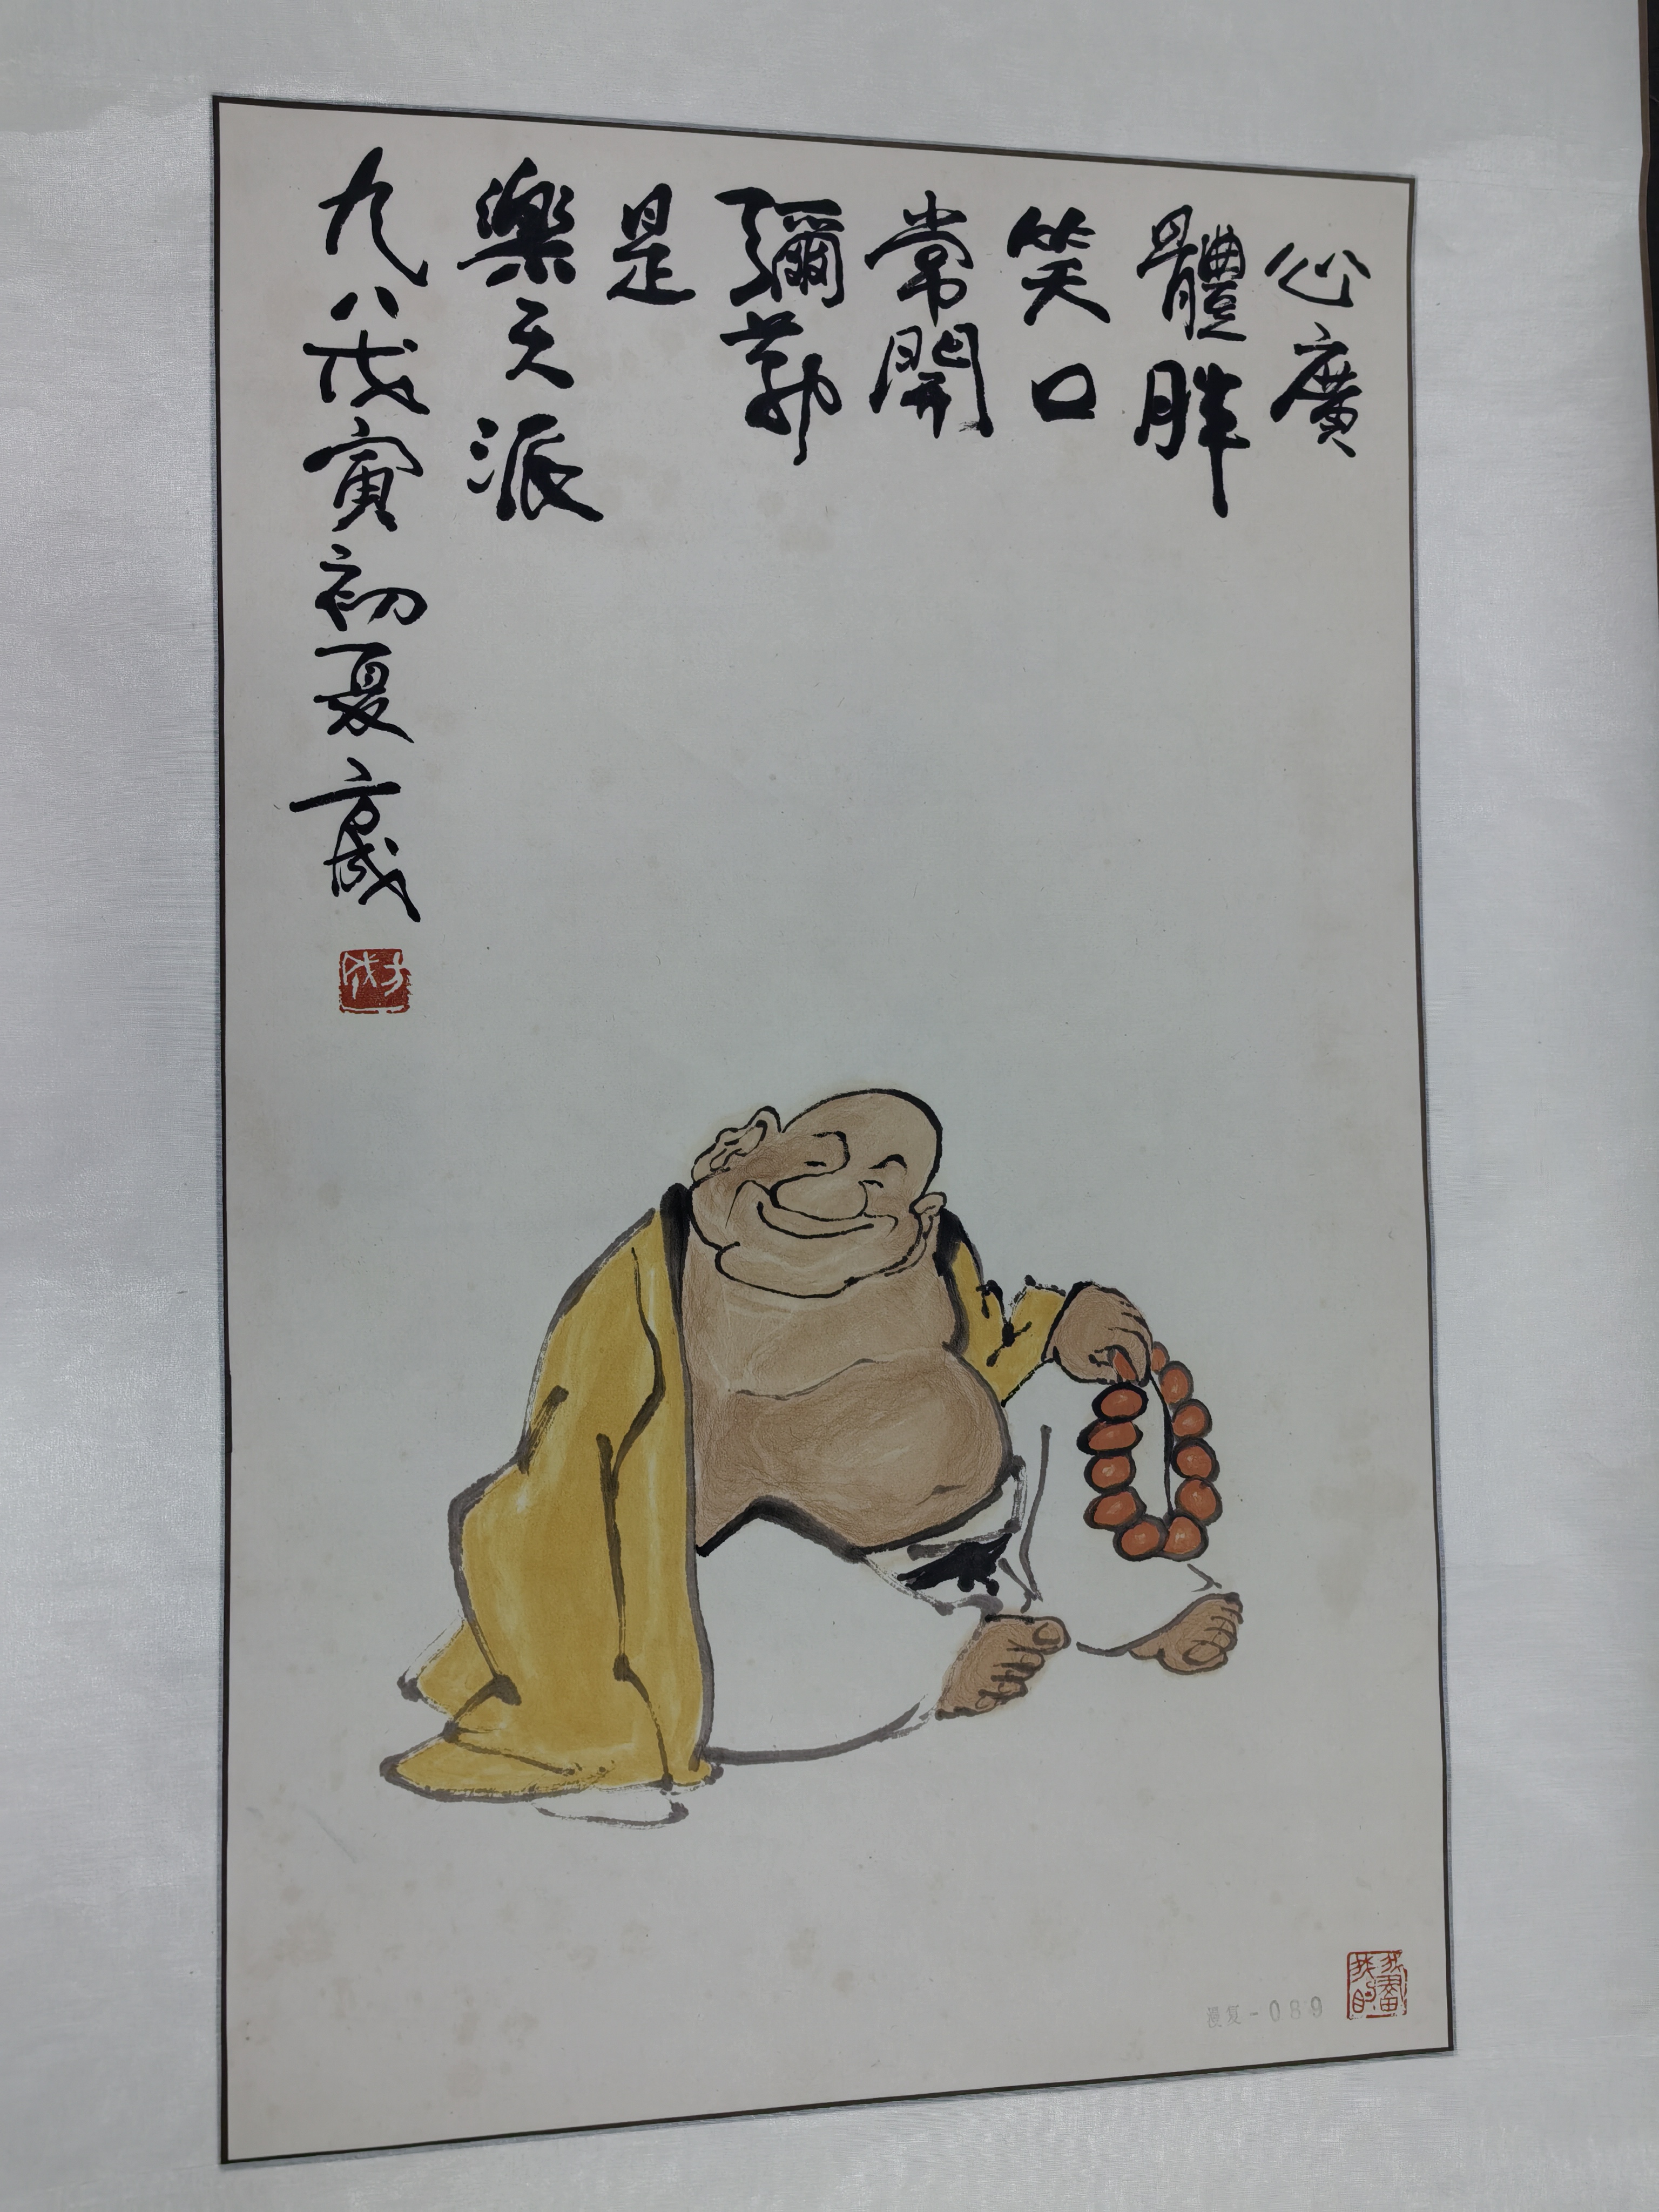 心廣
體胖
笑口
常開
彌勒
是
樂天派
九八戊寅初夏方成
方成
我畫我的
漫复-089